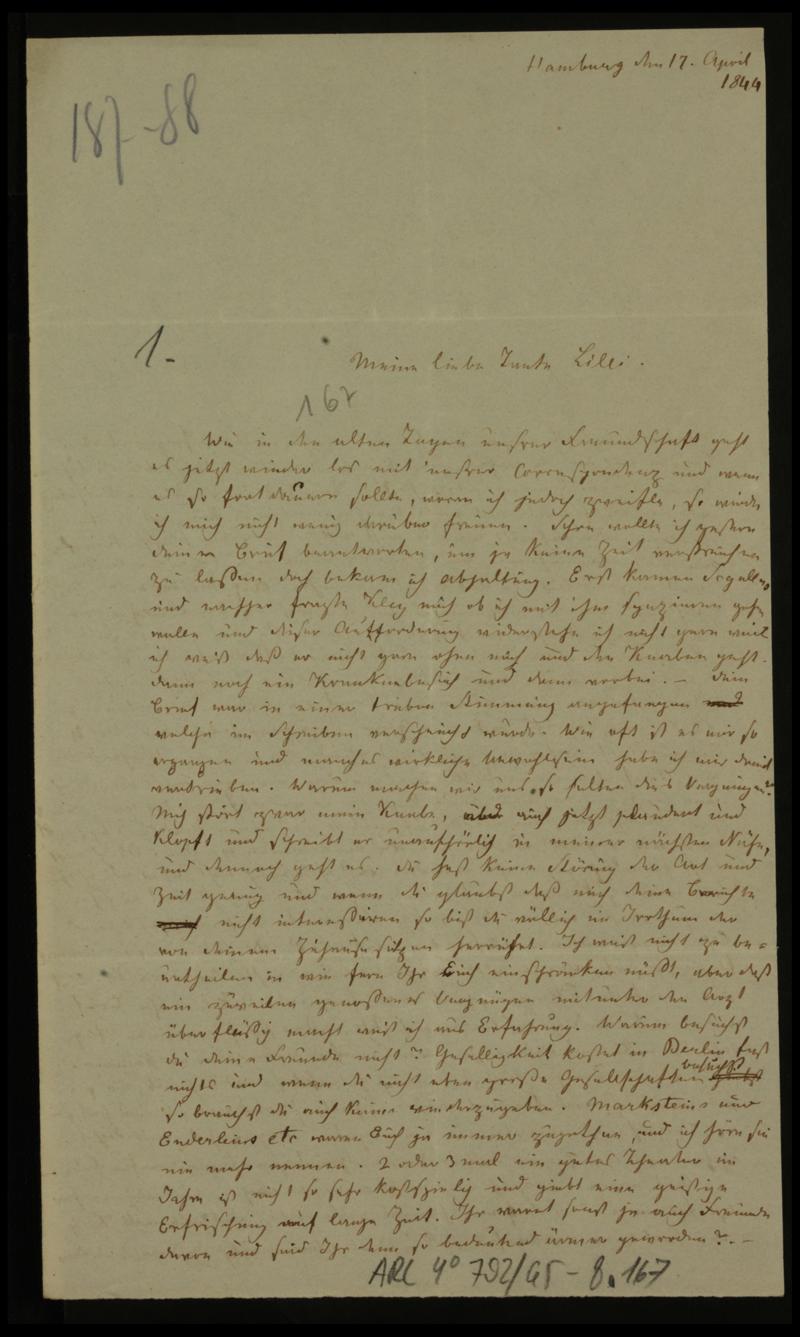 Hamburg den 17. April
1844
187-88
1.
Meine liebe Tante Lilli.
167
Wie in den alten Tagen unsrer Freundschaft geht
es jetzt wieder los mit unsrer Correspondenz und wenn
es so fortdauern sollte, woran ich jedoch zweifle, so würde
ich mich nicht wenig darüber freuen. Schon wollte ich gestern
deinen Brief beantworten, um ja keine Zeit verstreichen
zu laßen doch bekam ich abhaltung. Erst kamen
und nachher fragte Kley mich ob ich mit ihm spazieren gehn
wolle und dieser Aufforderung widerstehe ich nicht gern weil
ich weiß daß er nicht gern ohne mich und den Knaben geht.
dann noch ein Krankenbesuch und dann vorbei. – Dein
Brief war in einer trüben Stimmung angefangen
welche im Schreiben verscheucht wurde. Wie oft ist es mir so
ergangen und manches wirkliche Unwohlsein habe ich mir damit
vertrieben. Warum machen wir uns so selten dies Vergnügen?
Mich stört zwar mein Knabe, auch jetzt plaudert und
klopft und schreibt er unaufhörlich in meiner nächsten Nähe,
und dennoch geht es. du hast keine Störung der Art und
Zeit genug und wenn du glaubst daß mich deine Berichte
nicht interessiren so bist du völlig im Irrthum der
von deinem Zuhausesitzen herrührt. Ich weiß nicht zu be=
urtheilen in wie fern Ihr Euch einschränken müßt, aber daß
ein zuweilen genoßenes Vergnügen mitunter den Arzt
überflüßig macht weiß ich aus Erfahrung. Warum besuchst
du deine Freunde nicht? Geselligkeit kostet in Berlin fast
nichts und wenn du nicht eben große Gesellschaften besuchst
so brauchst du auch keine wiederzugeben. Marksteins und
Enderleins etc waren Euch ja immer zugethan, und ich höre sie
nie mehr nennen. 2 oder 3 mal ein gutes Theater im
Jahre ist nicht so sehr kostspielig und giebt eine geistige
Erfrischung auf lange Zeit. Ihr waret sonst ja auch Freunde
davon und seid Ihr denn so bedeutend ärmer geworden? –
ARC 4° 792/G5 - 8.167